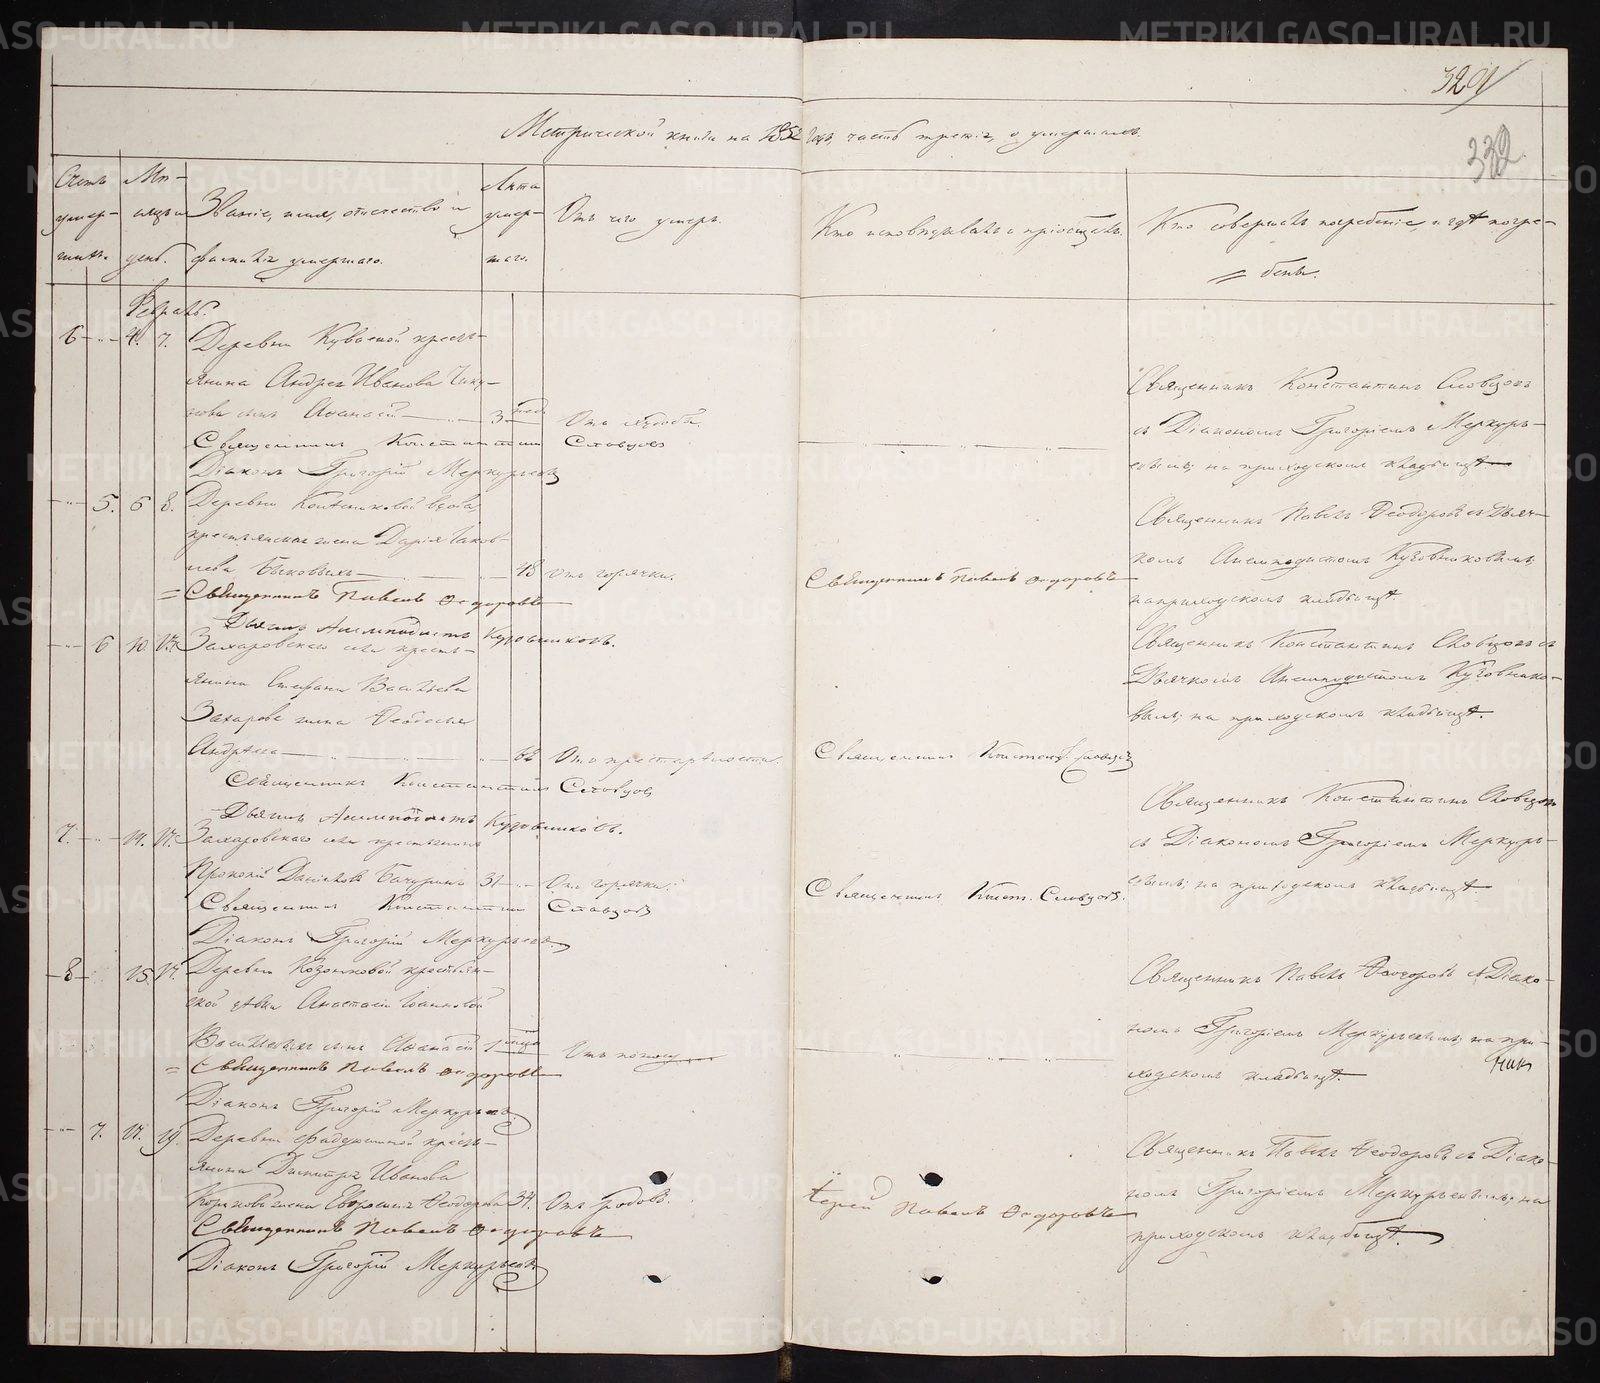 329
332
Метрической книги на 1852 годъ, часть третія, о умершихъ.
Счетъ умер- шихъ.
Мѣ- сяцъ и день.
Званіе, имя, отечество и фамилія умершаго.
Лѣта умер- шаго.
Отъ чего умеръ.
Кто исповѣдывалъ и пріобщалъ.
Кто совершалъ погребеніе, и гдѣ погре-
бены.
Февраль.
6 4. 7. Деревни Куваевой кресть-
янина Андрея Иванова
сынъ Аѳанасій 3 нед.
Священникъ Константинъ Словцовъ
Діаконъ Григорій Меркурьевъ
Священникъ Константинъ Словцовъ
съ Діакономъ Григоріемъ Меркурь-
евымъ; на приходскомъ кладбищѣ
5. 6 8. Деревни вдова,
крестьянская жена Дарія Іаков-
лева Быковыхъ 48 отъ горячки.
Священникъ Павелъ Ѳедоровъ
Дьячекъ Анемподистъ Кузовниковъ.
Священникъ Павелъ Ѳедоровъ
Священникъ Павелъ Ѳеодоровъ съ Дьяч-
комъ Анемподистомъ Кузовниковымъ;
на приходскомъ кладбищѣ.
6 10 12. Захаровскаго села кресть-
янина Стефана Васильева
Захарова жена Ѳеодосья
Андреева 62 Отъ престарѣлости.
Священникъ Константинъ Словцовъ
Дьячекъ Анемподистъ Кузовниковъ.
Священникъ Констант. Словцовъ
Священникъ Константинъ Словцовъ съ
Дьячкомъ Анемподистомъ Кузовнико-
вымъ; на приходскомъ кладбищѣ.
7. 14. 17. Захаровскаго села крестьянинъ
Прокопій Даниловъ Бачуринъ 31 Отъ горячки.
Священникъ Константинъ Словцовъ
Діаконъ Григорій Меркурьевъ
Священникъ Конст. Словцовъ.
Священникъ Константинъ Словцовъ
съ Діакономъ Григоріемъ Меркурь-
евымъ; на приходскомъ кладбищѣ.
8 15. 17. Деревни Казаковой крестьян-
ской дѣвки Анастасіи Іоанновой
Васильевыхъ сынъ Аѳанасій 1 Отъ поносу
Священникъ Павелъ Ѳедоровъ
Діаконъ Григорій Меркурьевъ
Священникъ Павелъ Ѳеодоровъ съ Діако-
номъ Григоріемъ Меркурьевымъ; на при-
ходскомъ кладбищѣ.
7. 17. 19. Деревни кресть-
янина Димитрія Иванова
жена Евдокія Ѳеодорова 34. Отъ родовъ.
Священникъ Павелъ Ѳедоровъ
Діаконъ Григорій Меркурьевъ
Іерей Павелъ Ѳедоровъ
Священникъ Павелъ Ѳеодоровъ съ Діако-
номъ Григоріемъ Меркурьевымъ; на
приходскомъ кладбищѣ.
METRIKI.GASO-URAL.RU